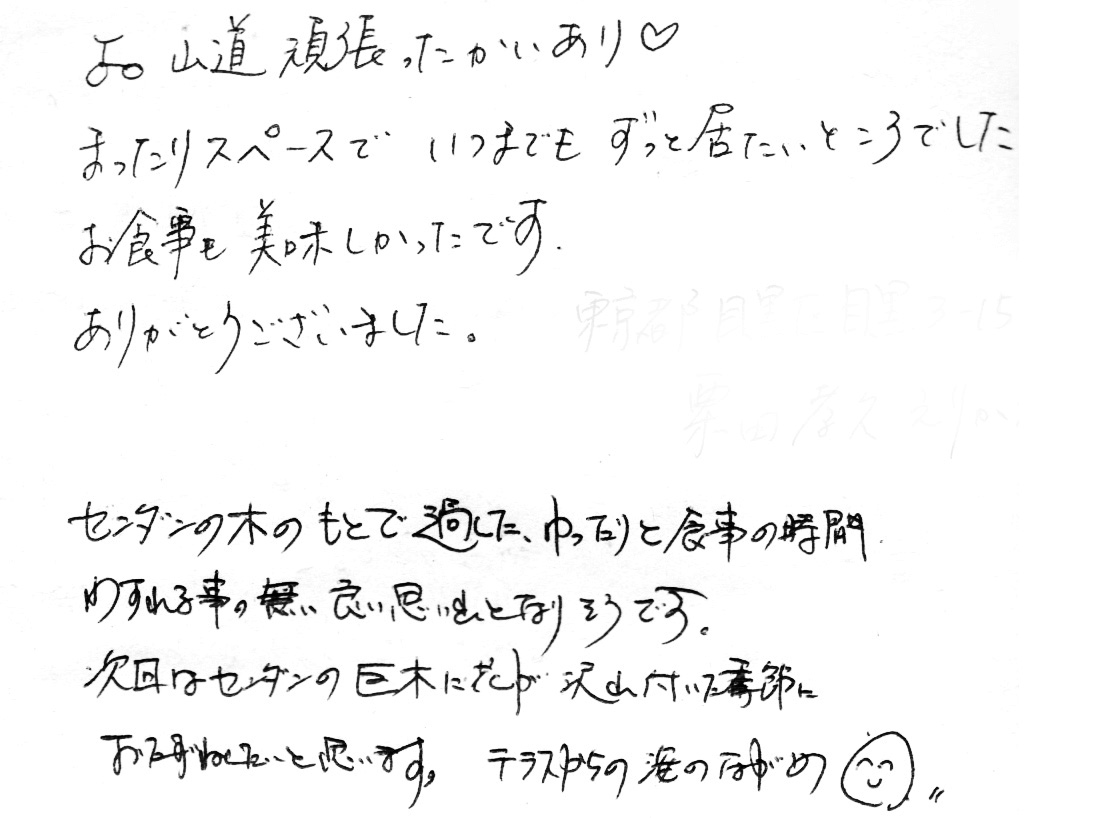 山道 頑張ったかいあり♡
まったりスペースで いつまでも ずっと居たいところでした
お食事も 美味しかったです.
ありがとうございました。
センダンの木の もとで 過した、ゆったりと 食事の時間
わすれる事の無い 良い思い出となりそうです。
次回はセンダンの 巨木に花が 沢山付いた季節に
おたずねしたいと思います。 テラスからの 海のながめ